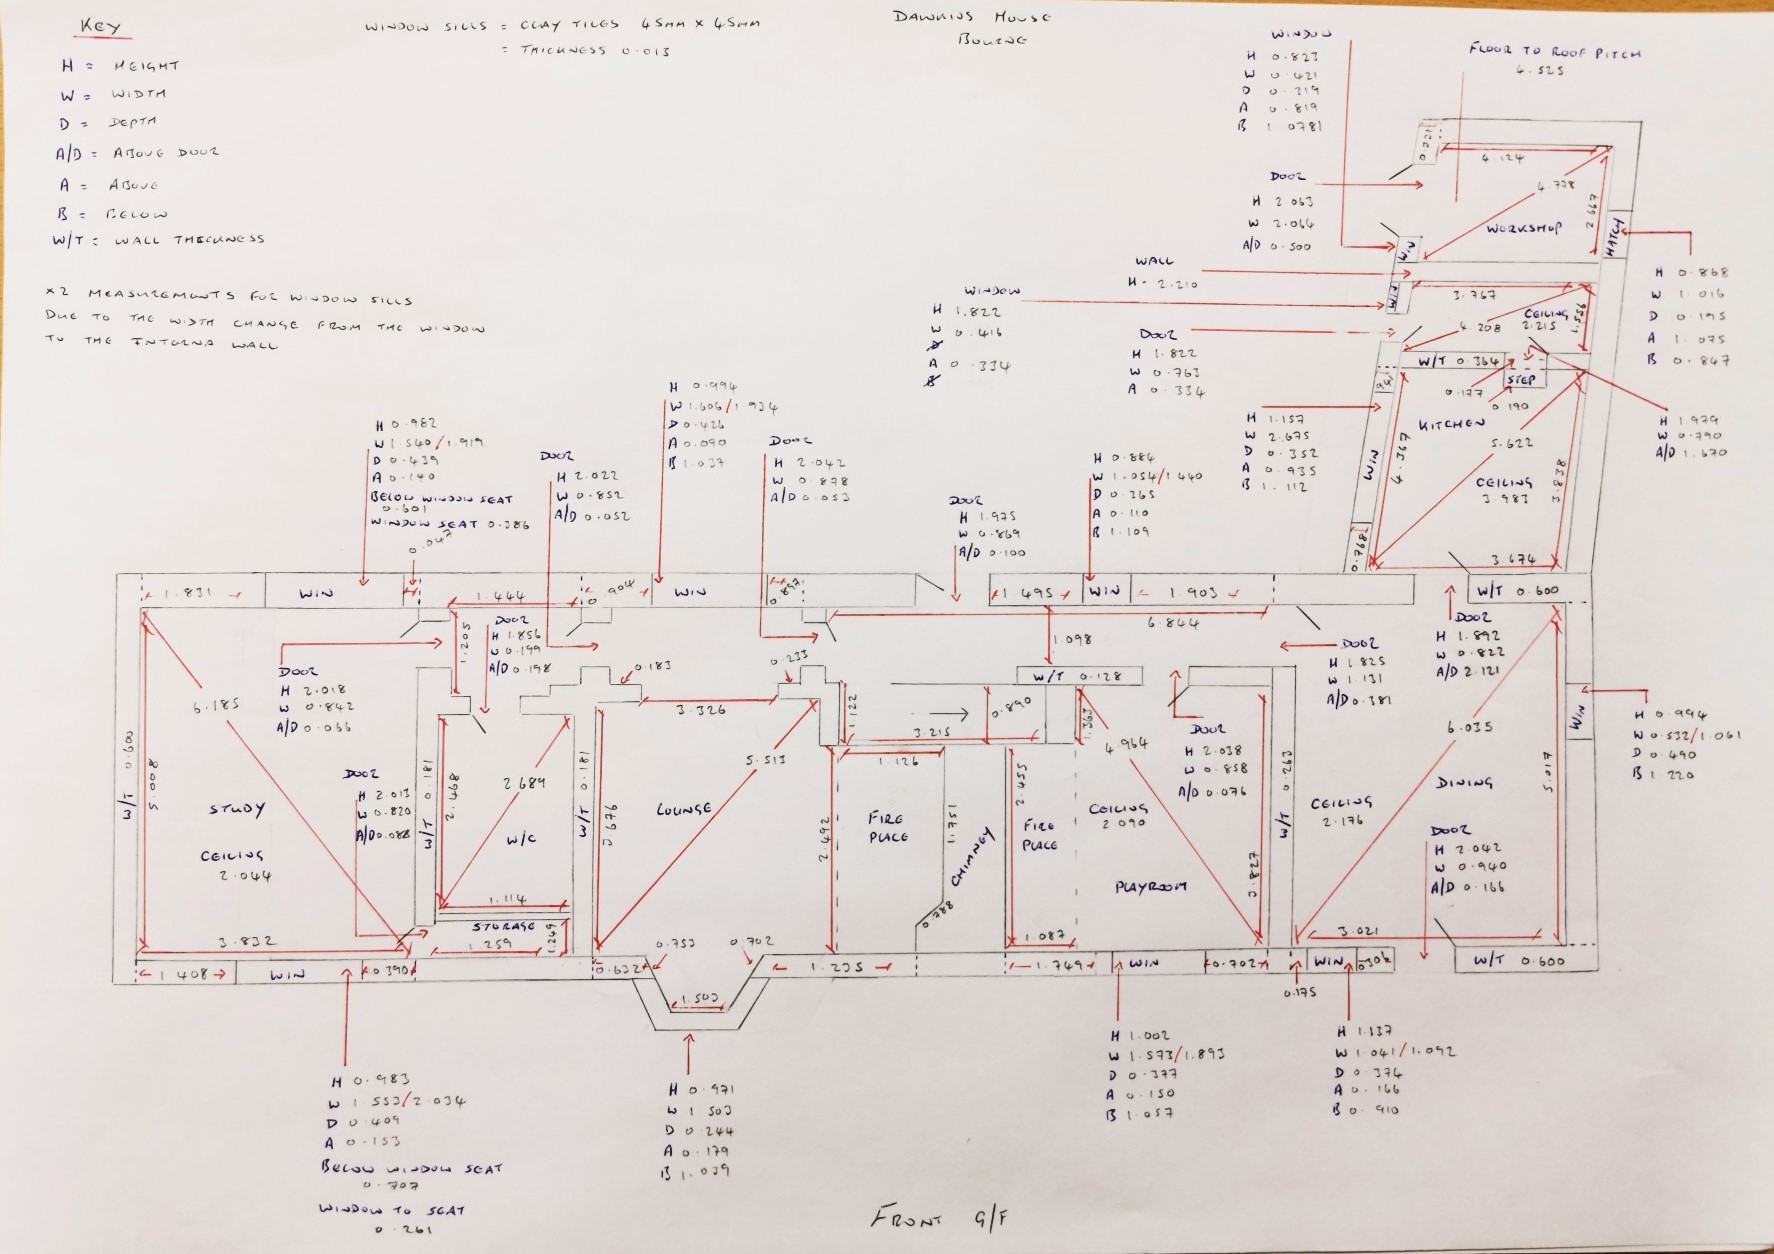 KEY
H = HEIGHT
W = WIDTH
D = DEPTH
A/D = ABOVE DOOR
A = ABOVE
B = BELOW
W/T = WALL THICKNESS
X2 MEASUREMENTS FOR WINDOW SILLS
DUE TO THE WIDTH CHANGE FROM THE WINDOW
TO THE INTERNA WALL
WINDOW SILLS = CLAY TILES 45MM X 45MM
= THICKNESS 0.013
DAWKINS HOUSE
BOURNE
WINDOW
H 0.823
W 0.421
D 0.219
A 0.819
B 1.0781
FLOOR TO ROOF PITCH
4.525
DOOR
H 2.063
W 2.064
A/D 0.500
4.124
4.778
2.667
WORKSHOP
WIN
HATCH
H 0.868
W 1.016
D 0.195
A 1.075
B 0.847
WALL
H - 2.210
WINDOW
H 1.822
W 0.416
A 0.334
WIN
3.767
4.208
CEILING
2.215
1.556
DOOR
H 1.822
W 0.763
A 0.334
W/T 0.364
STEP
0.177
0.190
H 1.979
W 0.790
A/D 1.670
H 1.157
W 2.675
D 0.352
A 0.935
B 1.112
KITCHEN
5.622
WIN
4.367
CEILING
3.983
3.838
0.768
3.674
H 0.982
W 1.540/1.919
D 0.439
A 0.140
BELOW WINDOW SEAT
0.601
WINDOW SEAT 0.386
DOOR
H 2.022
W 0.852
A/D 0.052
H 0.994
W 1.606/1.934
D 0.426
A 0.090
B 1.037
DOOR
H 2.042
W 0.878
A/D 0.053
DOOR
H 1.975
W 0.869
A/D 0.100
H 0.884
W 1.054/1.440
D 0.365
A 0.110
B 1.109
1.831
WIN
1.444
0.904
WIN
0.897
1.495
WIN
1.903
W/T 0.600
6.844
1.098
1.205
DOOR
H 1.856
W 0.799
A/D 0.198
0.183
0.233
DOOR
H 2.018
W 0.842
A/D 0.066
W/T 0.128
DOOR
H 1.825
W 1.131
A/D 0.381
DOOR
H 1.892
W 0.822
A/D 2.121
W/T 0.600
5.008
6.185
STUDY
CEILING
2.044
DOOR
H 2.013
W 0.820
A/D 0.088
W/T 0.181
2.468
2.689
W/C
1.114
STORAGE
1.259
1.249
W/T 0.181
3.676
3.326
LOUNGE
5.513
1.122
0.890
3.215
1.126
2.492
FIRE
PLACE
1.751
CHIMNEY
0.788
2.455
FIRE
PLACE
1.363
4.964
CEILING
2.090
DOOR
H 2.038
W 0.858
A/D 0.076
PLAYROOM
3.827
1.087
W/T 0.263
6.035
CEILING
2.176
DINING
5.017
WIN
H 0.994
W 0.532/1.061
D 0.490
B 1.220
DOOR
H 2.042
W 0.940
A/D 0.166
3.832
3.021
1.408
WIN
0.390
0.632
0.753
0.702
1.503
1.235
1.749
WIN
0.702
0.175
WIN
W/T 0.600
H 0.983
W 1.553/2.034
D 0.409
A 0.153
BELOW WINDOW SEAT
0.707
WINDOW TO SEAT
0.261
H 0.971
W 1.503
D 0.244
A 0.179
B 1.039
H 1.002
W 1.573/1.893
D 0.377
A 0.150
B 1.057
H 1.137
W 1.041/1.092
D 0.374
A 0.166
B 0.910
FRONT G/F